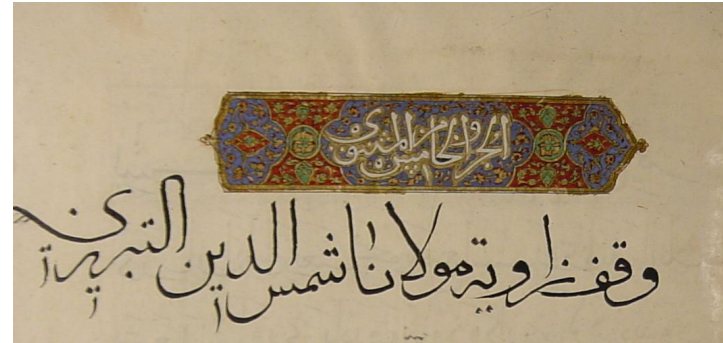 الجزو الخامس من المثنوی
وقف زاوية مولانا شمس الدين التبريزى